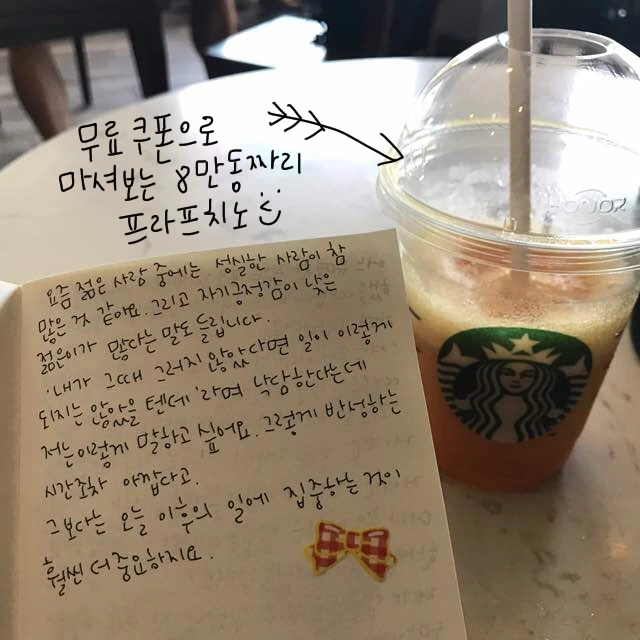 무료쿠폰으로
마셔보는 8만동짜리
프라프치노
요즘 젊은 사람 중에는 성실한 사람이 참
많은 것 같아요. 그리고 자기긍정감이 낮은
젊은이가 많다는 말도 들립니다.
'내가 그때 그러지 않았다면 일이 이렇게
되지는 않았을 텐데'라며 낙담한다는데
저는 이렇게 말하고 싶어요. 그렇게 반성하는
시간조차 아깝다고.
그보다는 오늘 이후의 일에 집중하는 것이
훨씬 더 중요하지요.